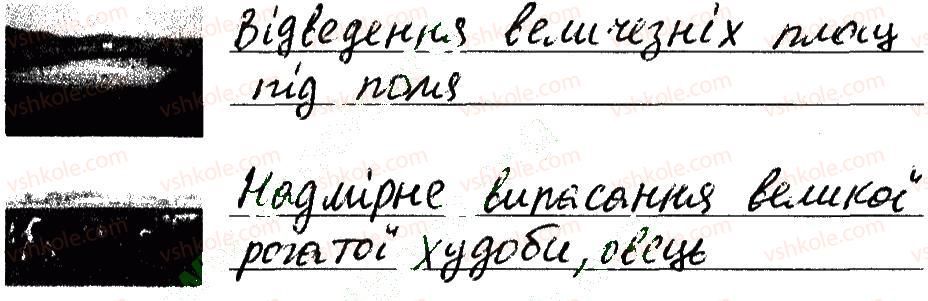 Відведення величезніх площ
під поля
Надмірне випасання великої
рогатої худоби, овець